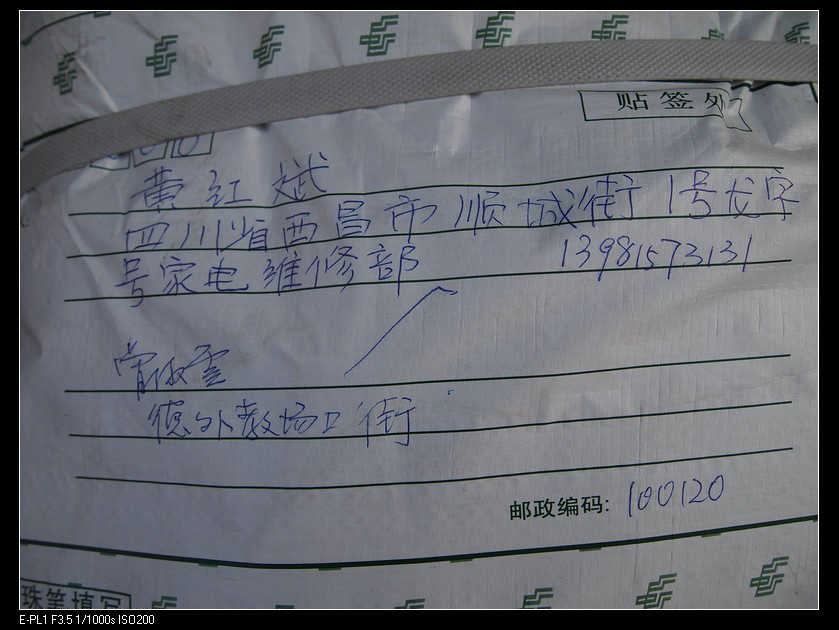 贴签处
黄红斌
四川省西昌市顺城街1号龙字
号家电维修部 13981573131
德外教场口街
邮政编码: 100120
珠笔填写
E-PL1 F3.5 1/1000s ISO200